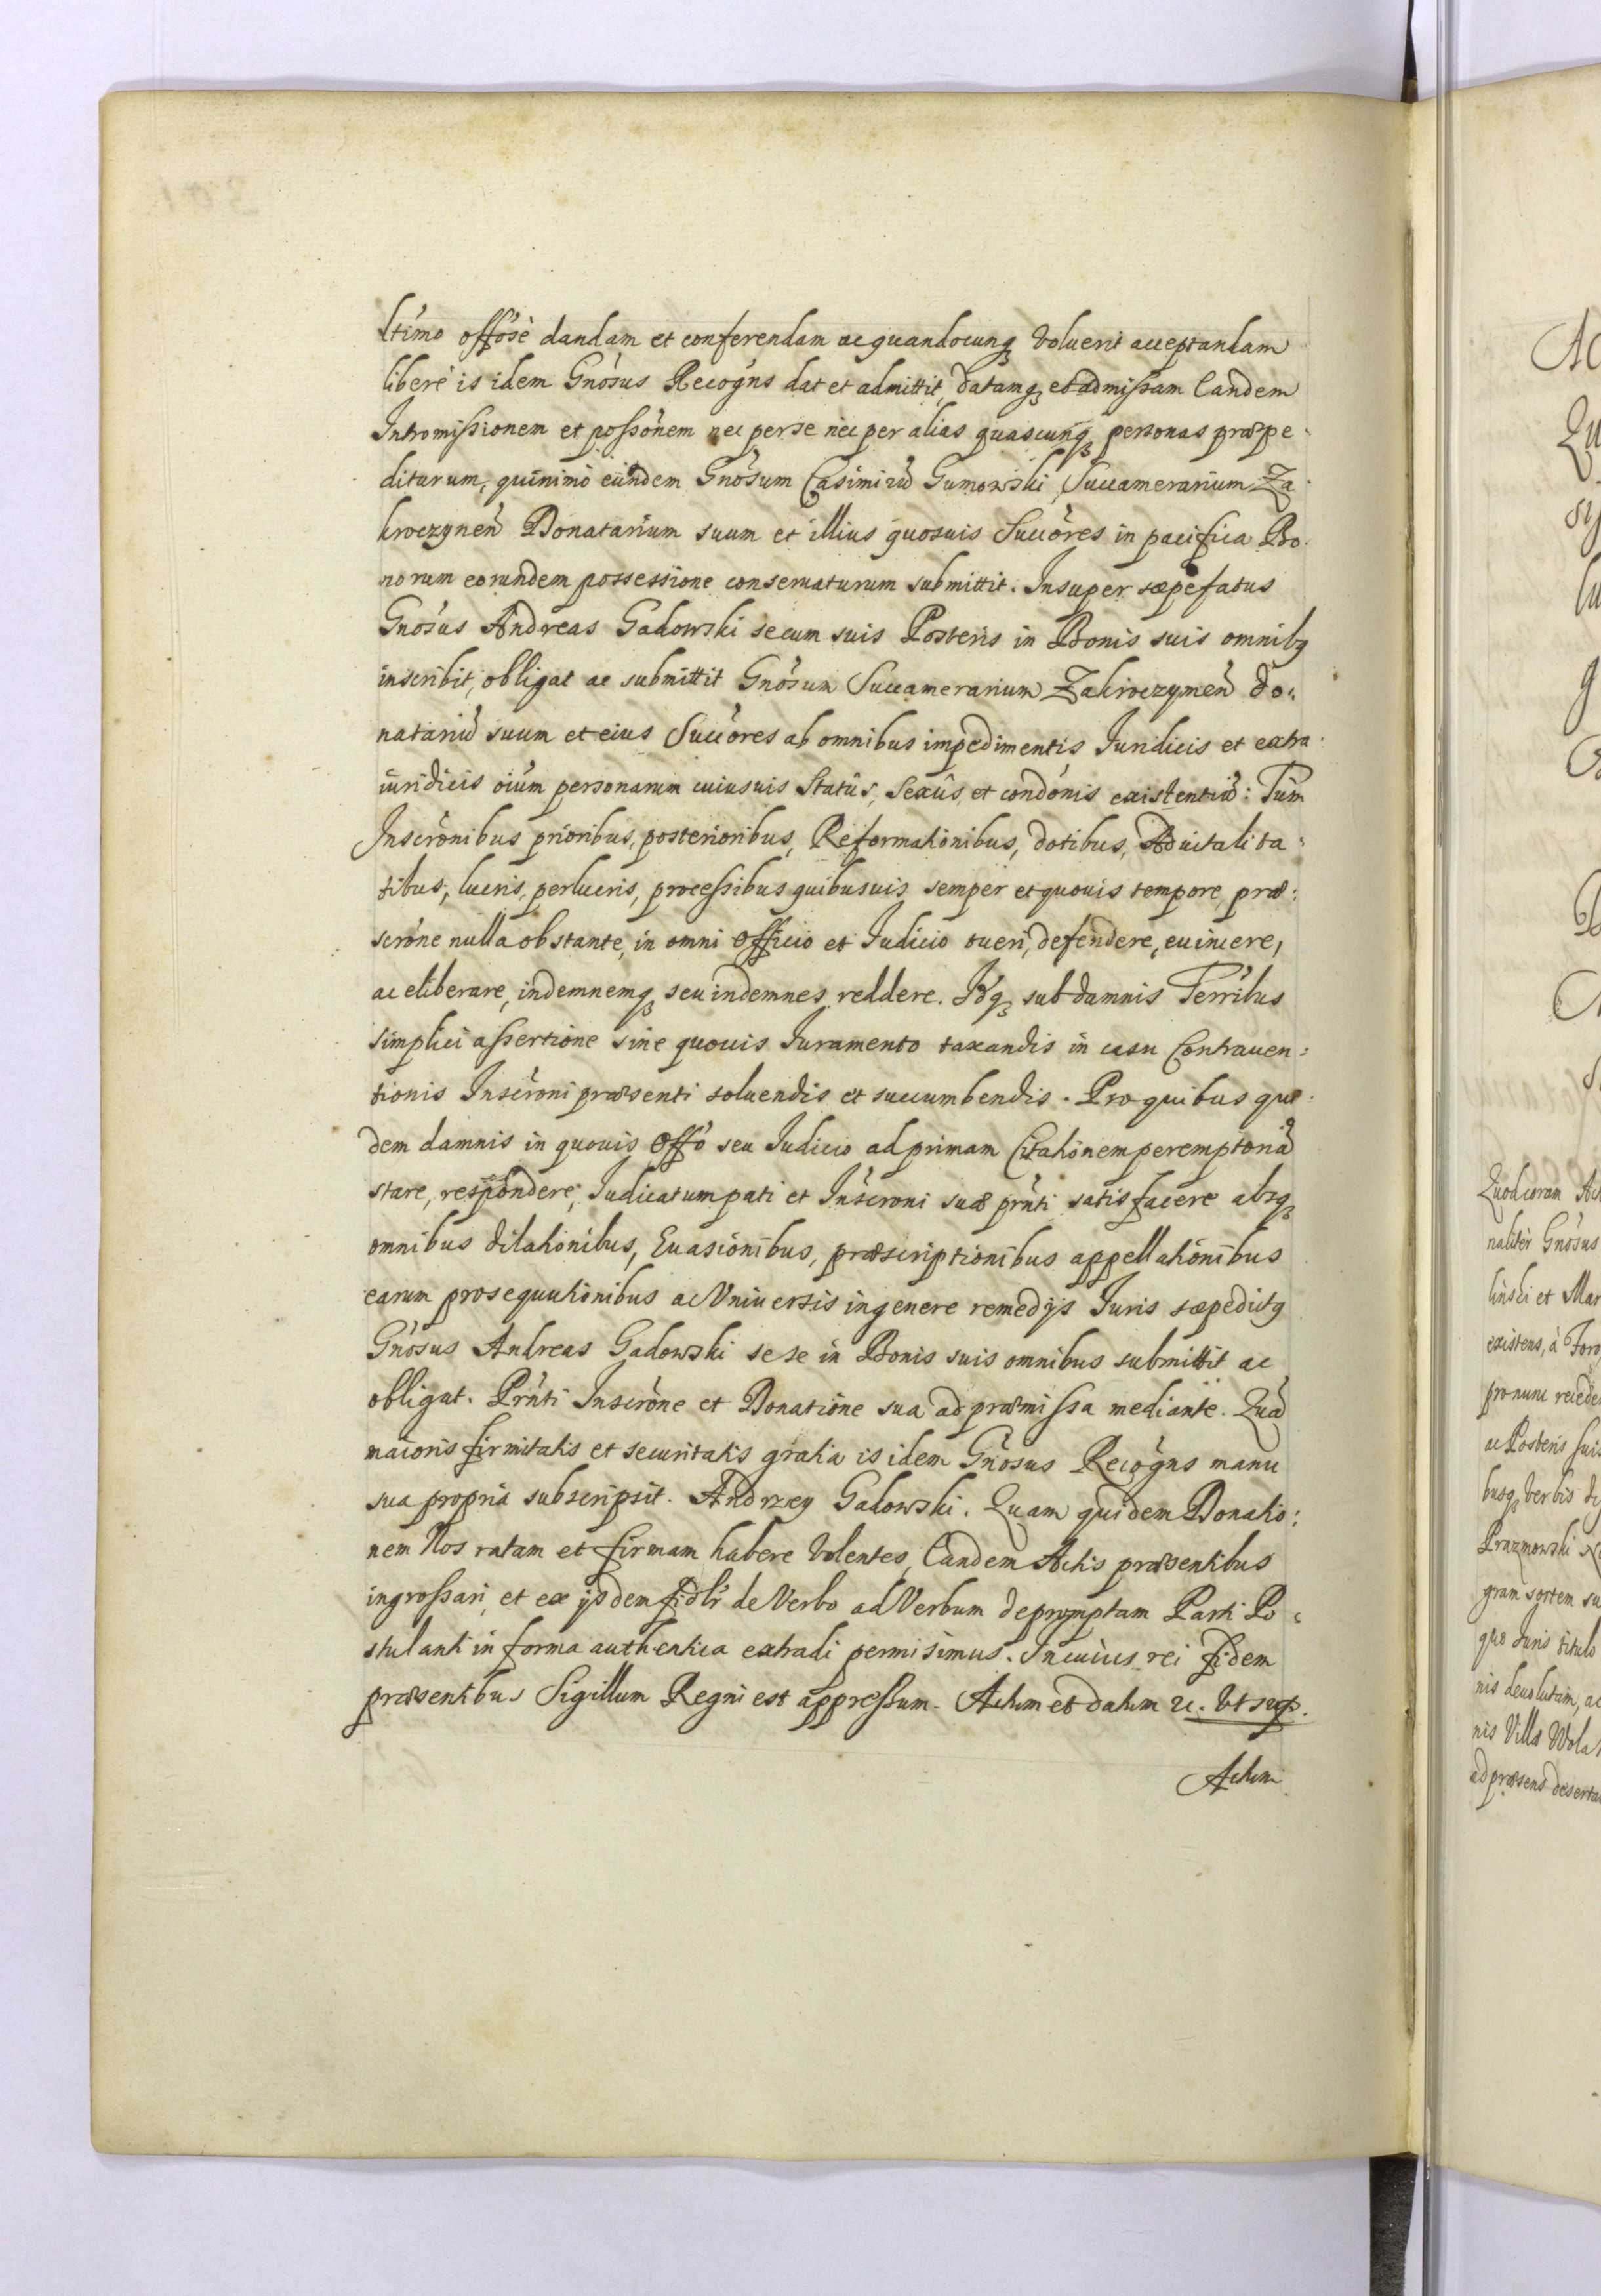 ltimo offosè dandam et conferendam ac quandocunq̃ Voluerit acceptandam
liberè is idem Gnosus Recogns dat et admittit, datamq̃ et admissam Eandem
Intromissionem et possonem nec per se nec per alias quascunq̃ personas præpe
diturum, quinimò eundem Gnosum Casimirũ Gumowski Succamerarium Za
kroczymeñ Donatarium suum et illius quosuis Succores in pacifica Bo
norum eorundem possessione conseruaturum submittit. Insuper sæpefatus
Gnosus Andreas Gadowski se cum suis Posteris in Bonis suis omnibq
inscribit, obligat ac submittit Gnosum Succamerarium Zakroczymeñ do:
natariũ suum et eius Succores ab omnibus impedimentis Juridicis et extra
iuridicis oium personarum cuiusuis Statûs, Sexûs, et condonis existentiũ: Tum
Inscronibus prioribus, posterioribus, Reformationibus, dotibus, Aduitalita:
tibus, lucris, perlucris, processibus quibusuis semper et quouis tempore, præ:
scrone nulla obstante, in omni Officio et Judicio tueri, defendere, euincere,
ac eliberare, indemnemq̃ seu indemnes reddere. Idq̃ sub damnis Terribus
simplici assertione sine quouis Juramento taxandis in casu Contrauen:
tionis Inscroni præsenti soluendis et succumbendis. Pro quibus qui
dem damnis in quouis Offo seu Judicio ad primam Citationem peremptoriã
stare, respondere, Judicatum pati et Inscroni suæ prnti satisfacere absq̃
omnibus dilationibus, Euasionibus, præscriptionibus appellationibus
earum prosequutionibus ac Vniuersis in genere remedijs Juris sæpedictq
Gnosus Andreas Gadowski sese in Bonis suis omnibus submittit ac
obligat. Prnti Inscrone et Donatione sua ad præmissa mediante. Quã
maioris firmitatis et securitatis gratia is idem Gnosus Recogns manu
sua propria subscripsit. Andrzey Gadowski. Quam quidem Donatio:
nem Nos ratam et firmam habere Volentes, Eandem Actis præsentibus
ingrossari, et ex ijsdem fidlr de Verbo ad Verbum depromptam Parti Po
stulanti in forma authentica extradi permisimus. In cuius rei fidem
præsentibus Sigillum Regni est appressum. Actum et datum &c. Vt sup.
Actum
Quod coram Ac
naliter Gnosus
linski et Mar
existens, à Foro
pro nunc recede
ac Posteris suis
busq̃ Verbis
Prazmowski
gram sortem su
quo Juris titulo
nis deuolutam, ac
nis Villa Wola
ad præsens deserta